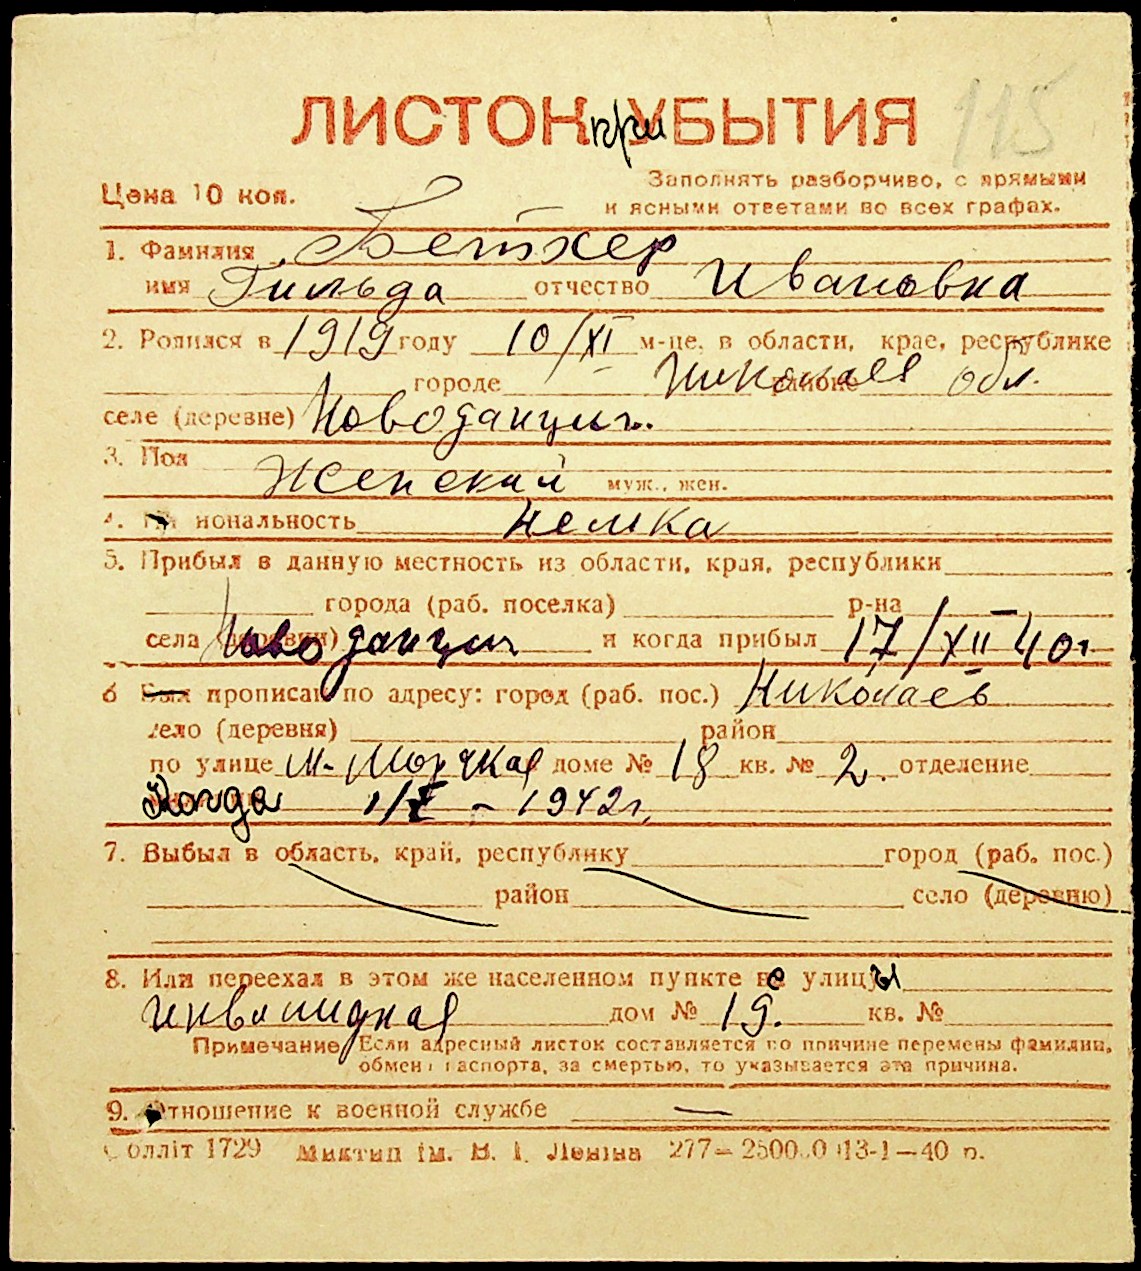 115
ЛИСТОК при УБЫТИЯ
Цена 10 коп.
Заполнять разборчиво, с прямыми
и ясными ответами во всех графах.
1. Фамилия Бетхер
имя Гильда отчество Ивановна
2. Родился в 1919 году 10/XI м-це, в области, крае, республике
городе районе Николаев обл.
селе (деревне) Новоданциг.
3. Пол Женский муж., жен.
4. иональность Немка
5. Прибыл в данную местность из области, края, республики
города (раб. поселка) р-на
села (деревни) Новоданциг и когда прибыл 17/XII 40г
6 Был прописан по адресу: город (раб. пос.) Николаев
село (деревня) район
по улице М. Морская доме № 18 кв. № 2. отделение
Когда 1/X - 1942г.
7. Выбыл в область, край, республику город (раб. пос.)
район село (деревню)
8. Или переехал в этом же населенном пункте с улицы
Инвалидная дом № 19. кв. №
Примечание Если адресный листок составляется по причине перемены фамилии,
обмен паспорта, за смертью, то указывается эта причина.
9. Отношение к военной службе —
облліт 1729 Миктип ім. В. І. Леніна 277— 2500.0 13-1—40 р.